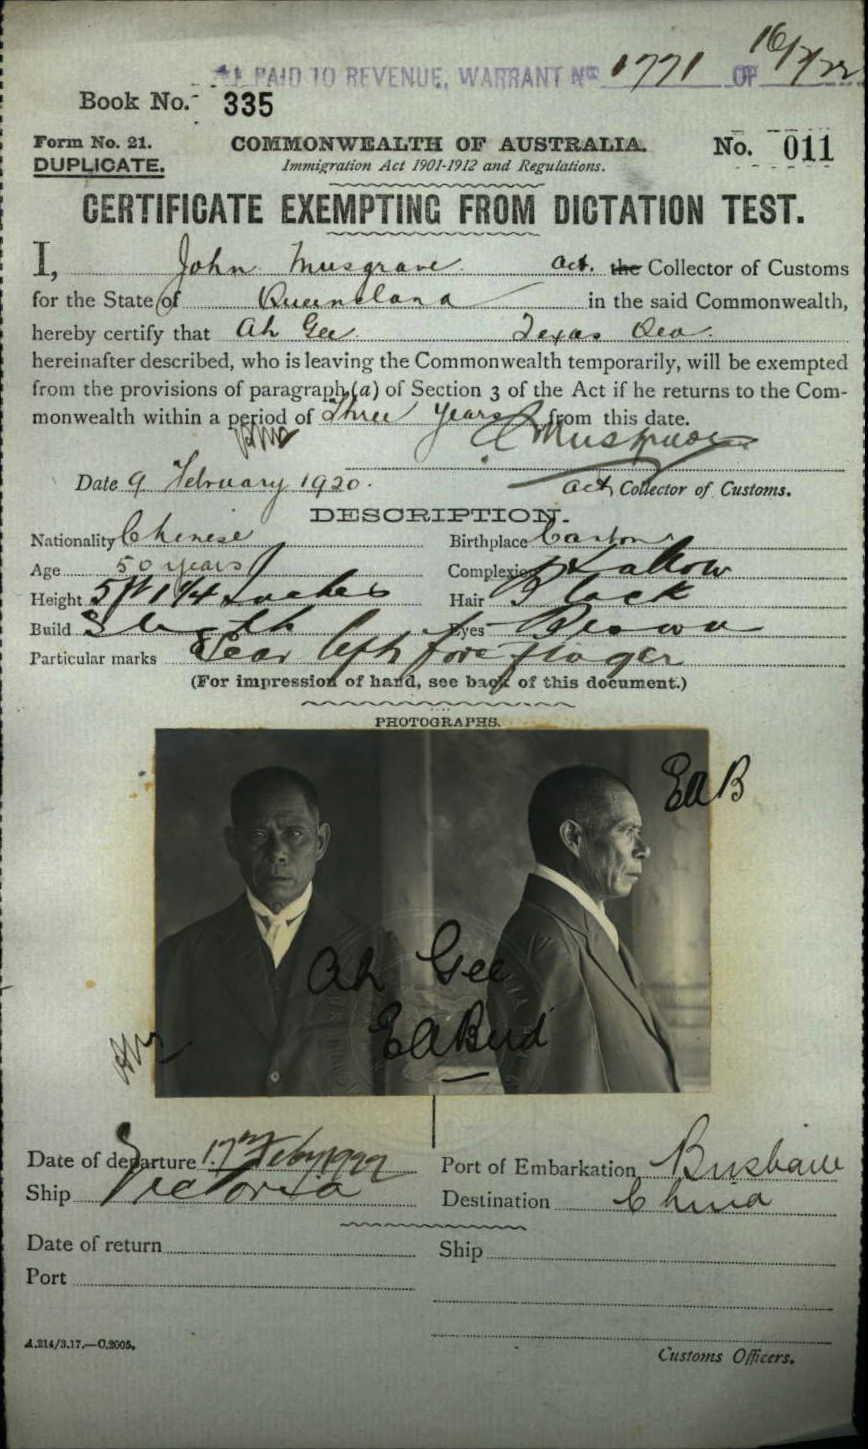 £1 PAID TO REVENUE, WARRANT No 1771 OF 16/2/22
Book No. 335
Form No. 21.
DUPLICATE.
COMMONWEALTH OF AUSTRALIA.
Immigration Act 1901-1912 and Regulations.
No. 011
CERTIFICATE EXEMPTING FROM DICTATION TEST.
I, John Musgrave act. the Collector of Customs
for the State of Queensland in the said Commonwealth,
hereby certify that Ah Gee Texas
hereinafter described, who is leaving the Commonwealth temporarily, will be exempted
from the provisions of paragraph (a) of Section 3 of the Act if he returns to the Com-
monwealth within a period of Three Years from this date.
J Musgrave
Date 9 February 1920.
act Collector of Customs.
DESCRIPTION.
Nationality Chinese Birthplace Canton
Age 50 years Complexion Sallow
Height 5ft 1 1/4 Inches Hair Black
Build Eyes Brown
Particular marks Scar left forefinger
(For impression of hand, see back of this document.)
PHOTOGRAPHS.
EAB
Ah Gee
EABird
Date of departure 17th Feby 1922 Port of Embarkation Brisbane
Ship Victoria Destination China
Date of return Ship
Port
A.214/3.17.—C.2005.
Customs Officers.